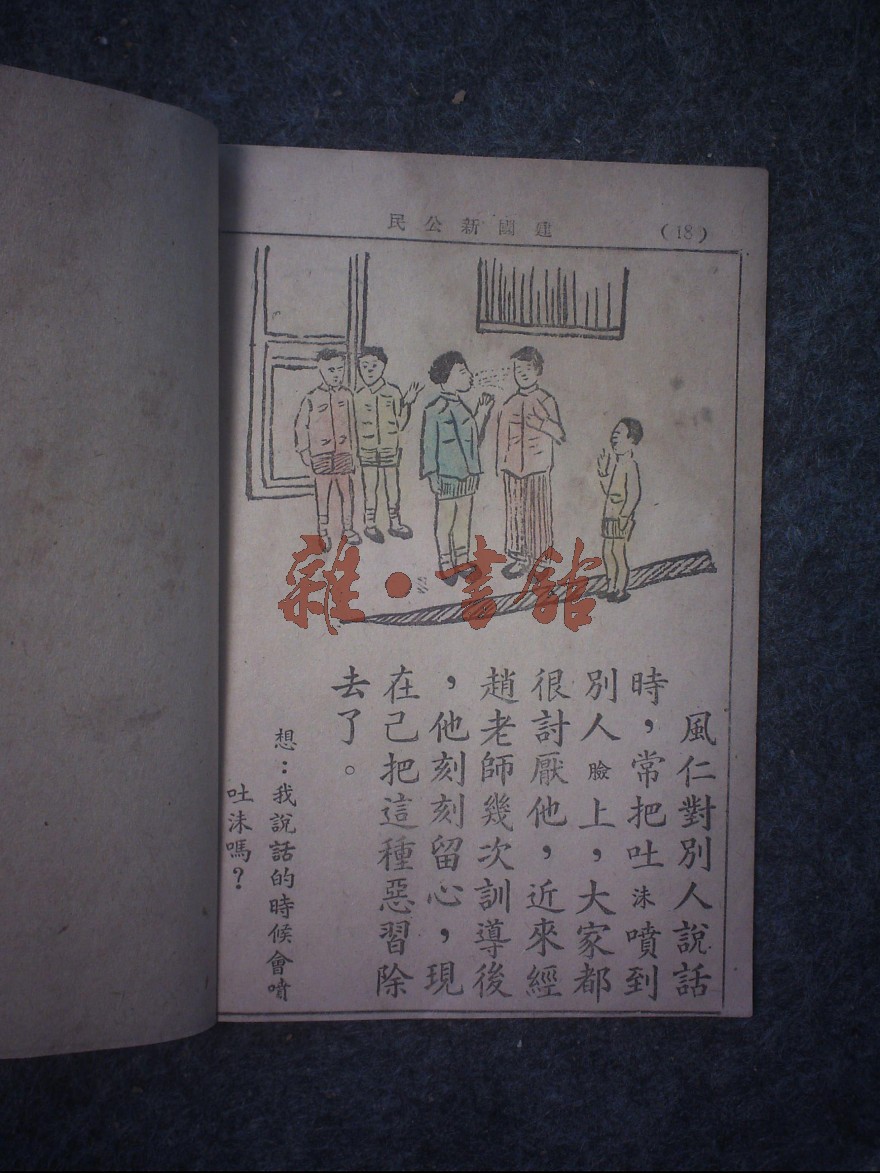 建國新公民
(18)
雜·書館
風仁對別人說話
時，常把吐沫噴到
別人臉上，大家都
很討厭他，近來經
趙老師幾次訓導後
，他刻刻留心，現
在己把這種惡習除
去了。
想：我說話的時候會噴
吐沫嗎？